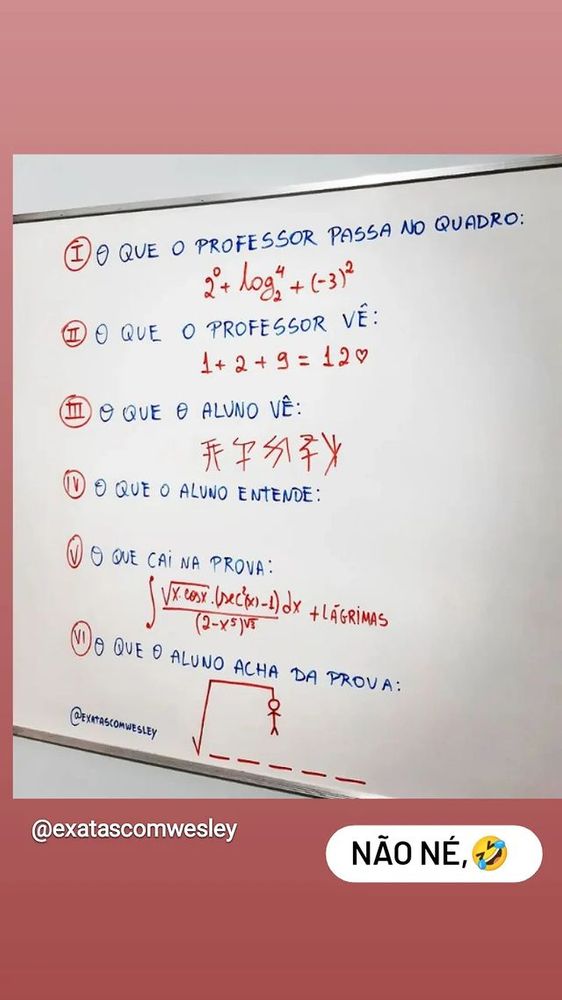 I O QUE O PROFESSOR PASSA NO QUADRO:
2⁰ + log₂⁴ + (-3)²
II O QUE O PROFESSOR VÊ:
1 + 2 + 9 = 12 ♡
III O QUE O ALUNO VÊ:
IV O QUE O ALUNO ENTENDE:
V O QUE CAI NA PROVA:
∫ √x·cosx·(sec²(x)-1)/(2-x⁵)^√5 dx + LÁGRIMAS
VI O QUE O ALUNO ACHA DA PROVA:
@EXATASCOMWESLEY
@exatascomwesley
NÃO NÉ,🤣